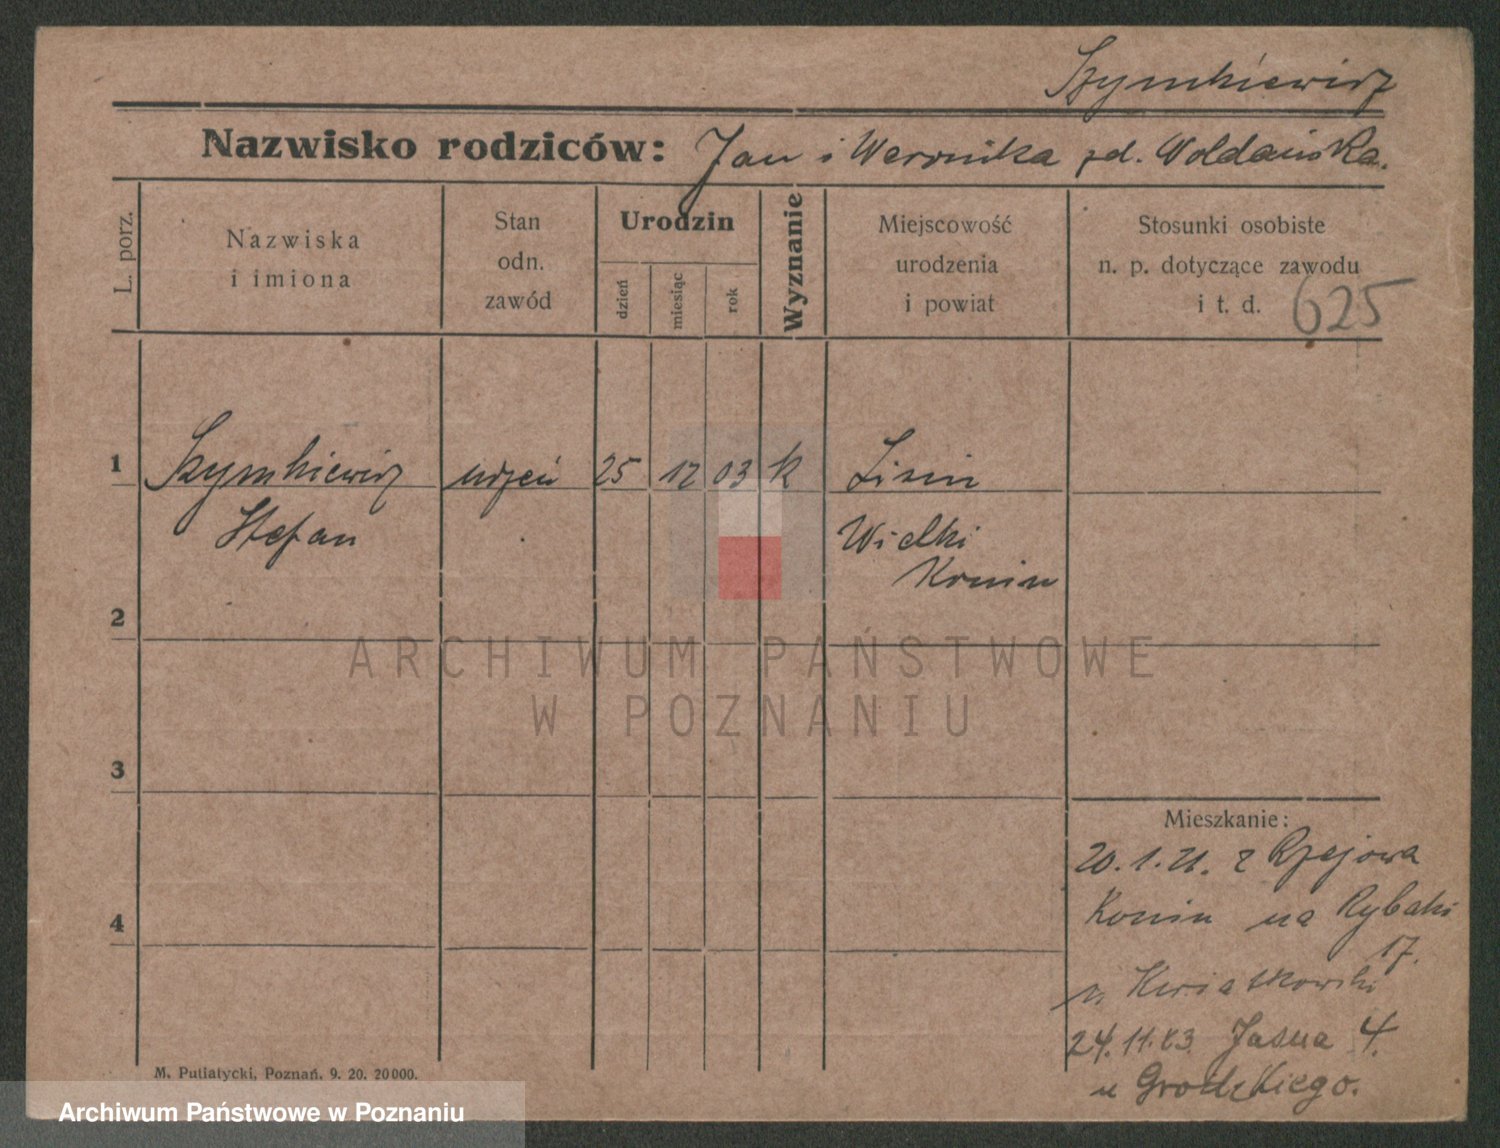 Szymkiewicz
Nazwisko rodziców: Jan i Weronika zd. Woldańska.
L. porz.
Nazwiska
i imiona
Stan
odn.
zawód
Urodzin
dzień
miesiąc
rok
Wyznanie
Miejscowość
urodzenia
i powiat
Stosunki osobiste
n. p. dotyczące zawodu
i t. d.
625
1 Szymkiewicz uczeń 25 12 03 k Lisin
Stefan Wielki
Konin
2
3
4
Mieszkanie:
20.1.21. z Rzejowa
Konin na Rybaki
17.
Kwiatkowski
24.11.23 Jasna 4.
u Grodzkiego.
M. Putiatycki, Poznań. 9. 20. 20000.
ARCHIWUM PAŃSTWOWE
W POZNANIU
Archiwum Państwowe w Poznaniu